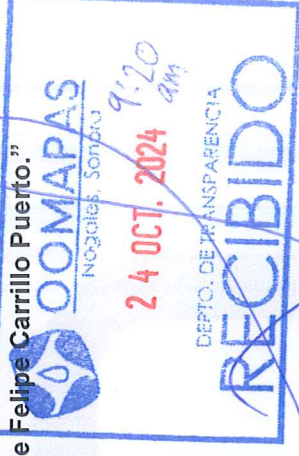 e Felipe Carrillo Puerto.”
OOMAPAS
Nogales, Sonora
9:20
am
24 OCT. 2024
DEPTO. DE TRANSPARENCIA
RECIBIDO